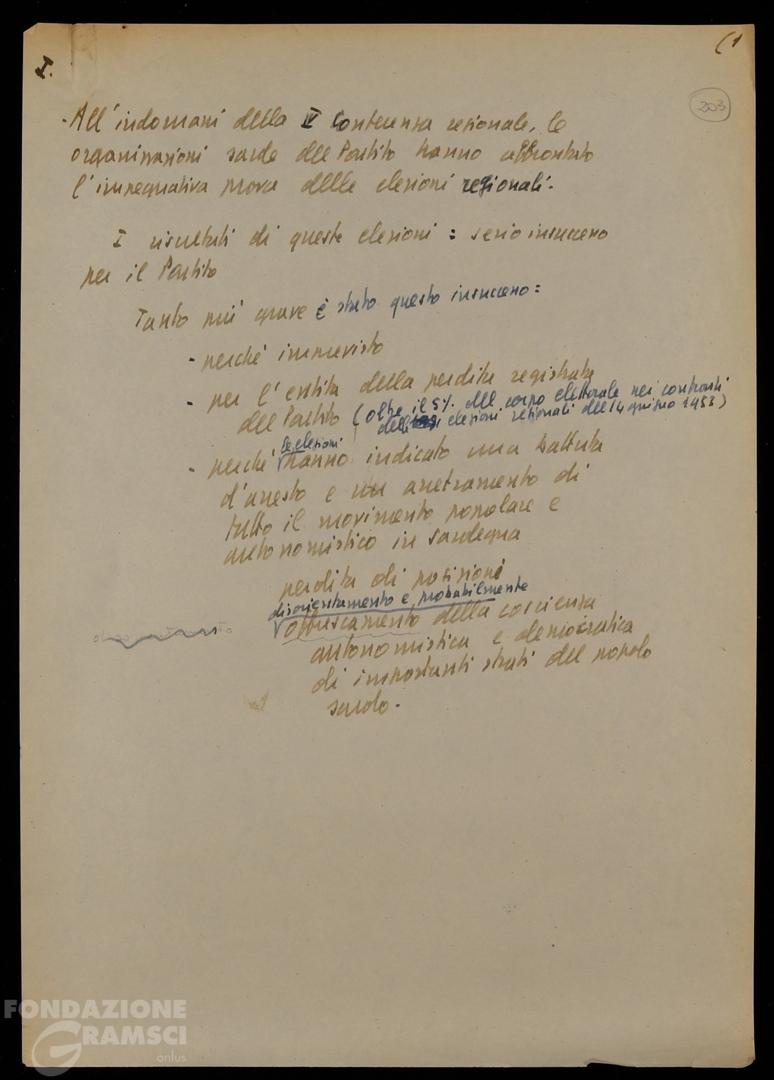 I.
(1
203
- All'indomani della V Conferenza regionale, le
organizzazioni sarde del Partito hanno affrontato
l'impegnativa prova delle elezioni regionali.
I risultati di queste elezioni : serio insuccesso
per il Partito
Tanto più grave è stato questo insuccesso :
- perché imprevisto
- per l'entità della perdita registrata
del Partito (oltre il 5% del corpo elettorale nei confronti
delle elezioni regionali del 14 giugno 1953)
le elezioni
- perché hanno indicato una battuta
d'arresto e un arretramento di
tutto il movimento popolare e
autonomistico in Sardegna
perdita di posizioni
disorientamento e probabilmente
offuscamento della coscienza
autonomistica e democratica
di importanti strati del popolo
sardo.
FONDAZIONE
GRAMSCI
onlus